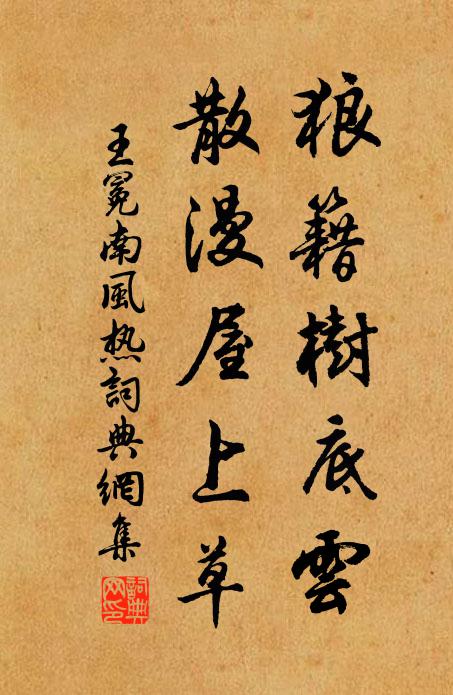 狼籍樹底雲
散漫屋上草
王冕南風热詞典網集
詞典网印